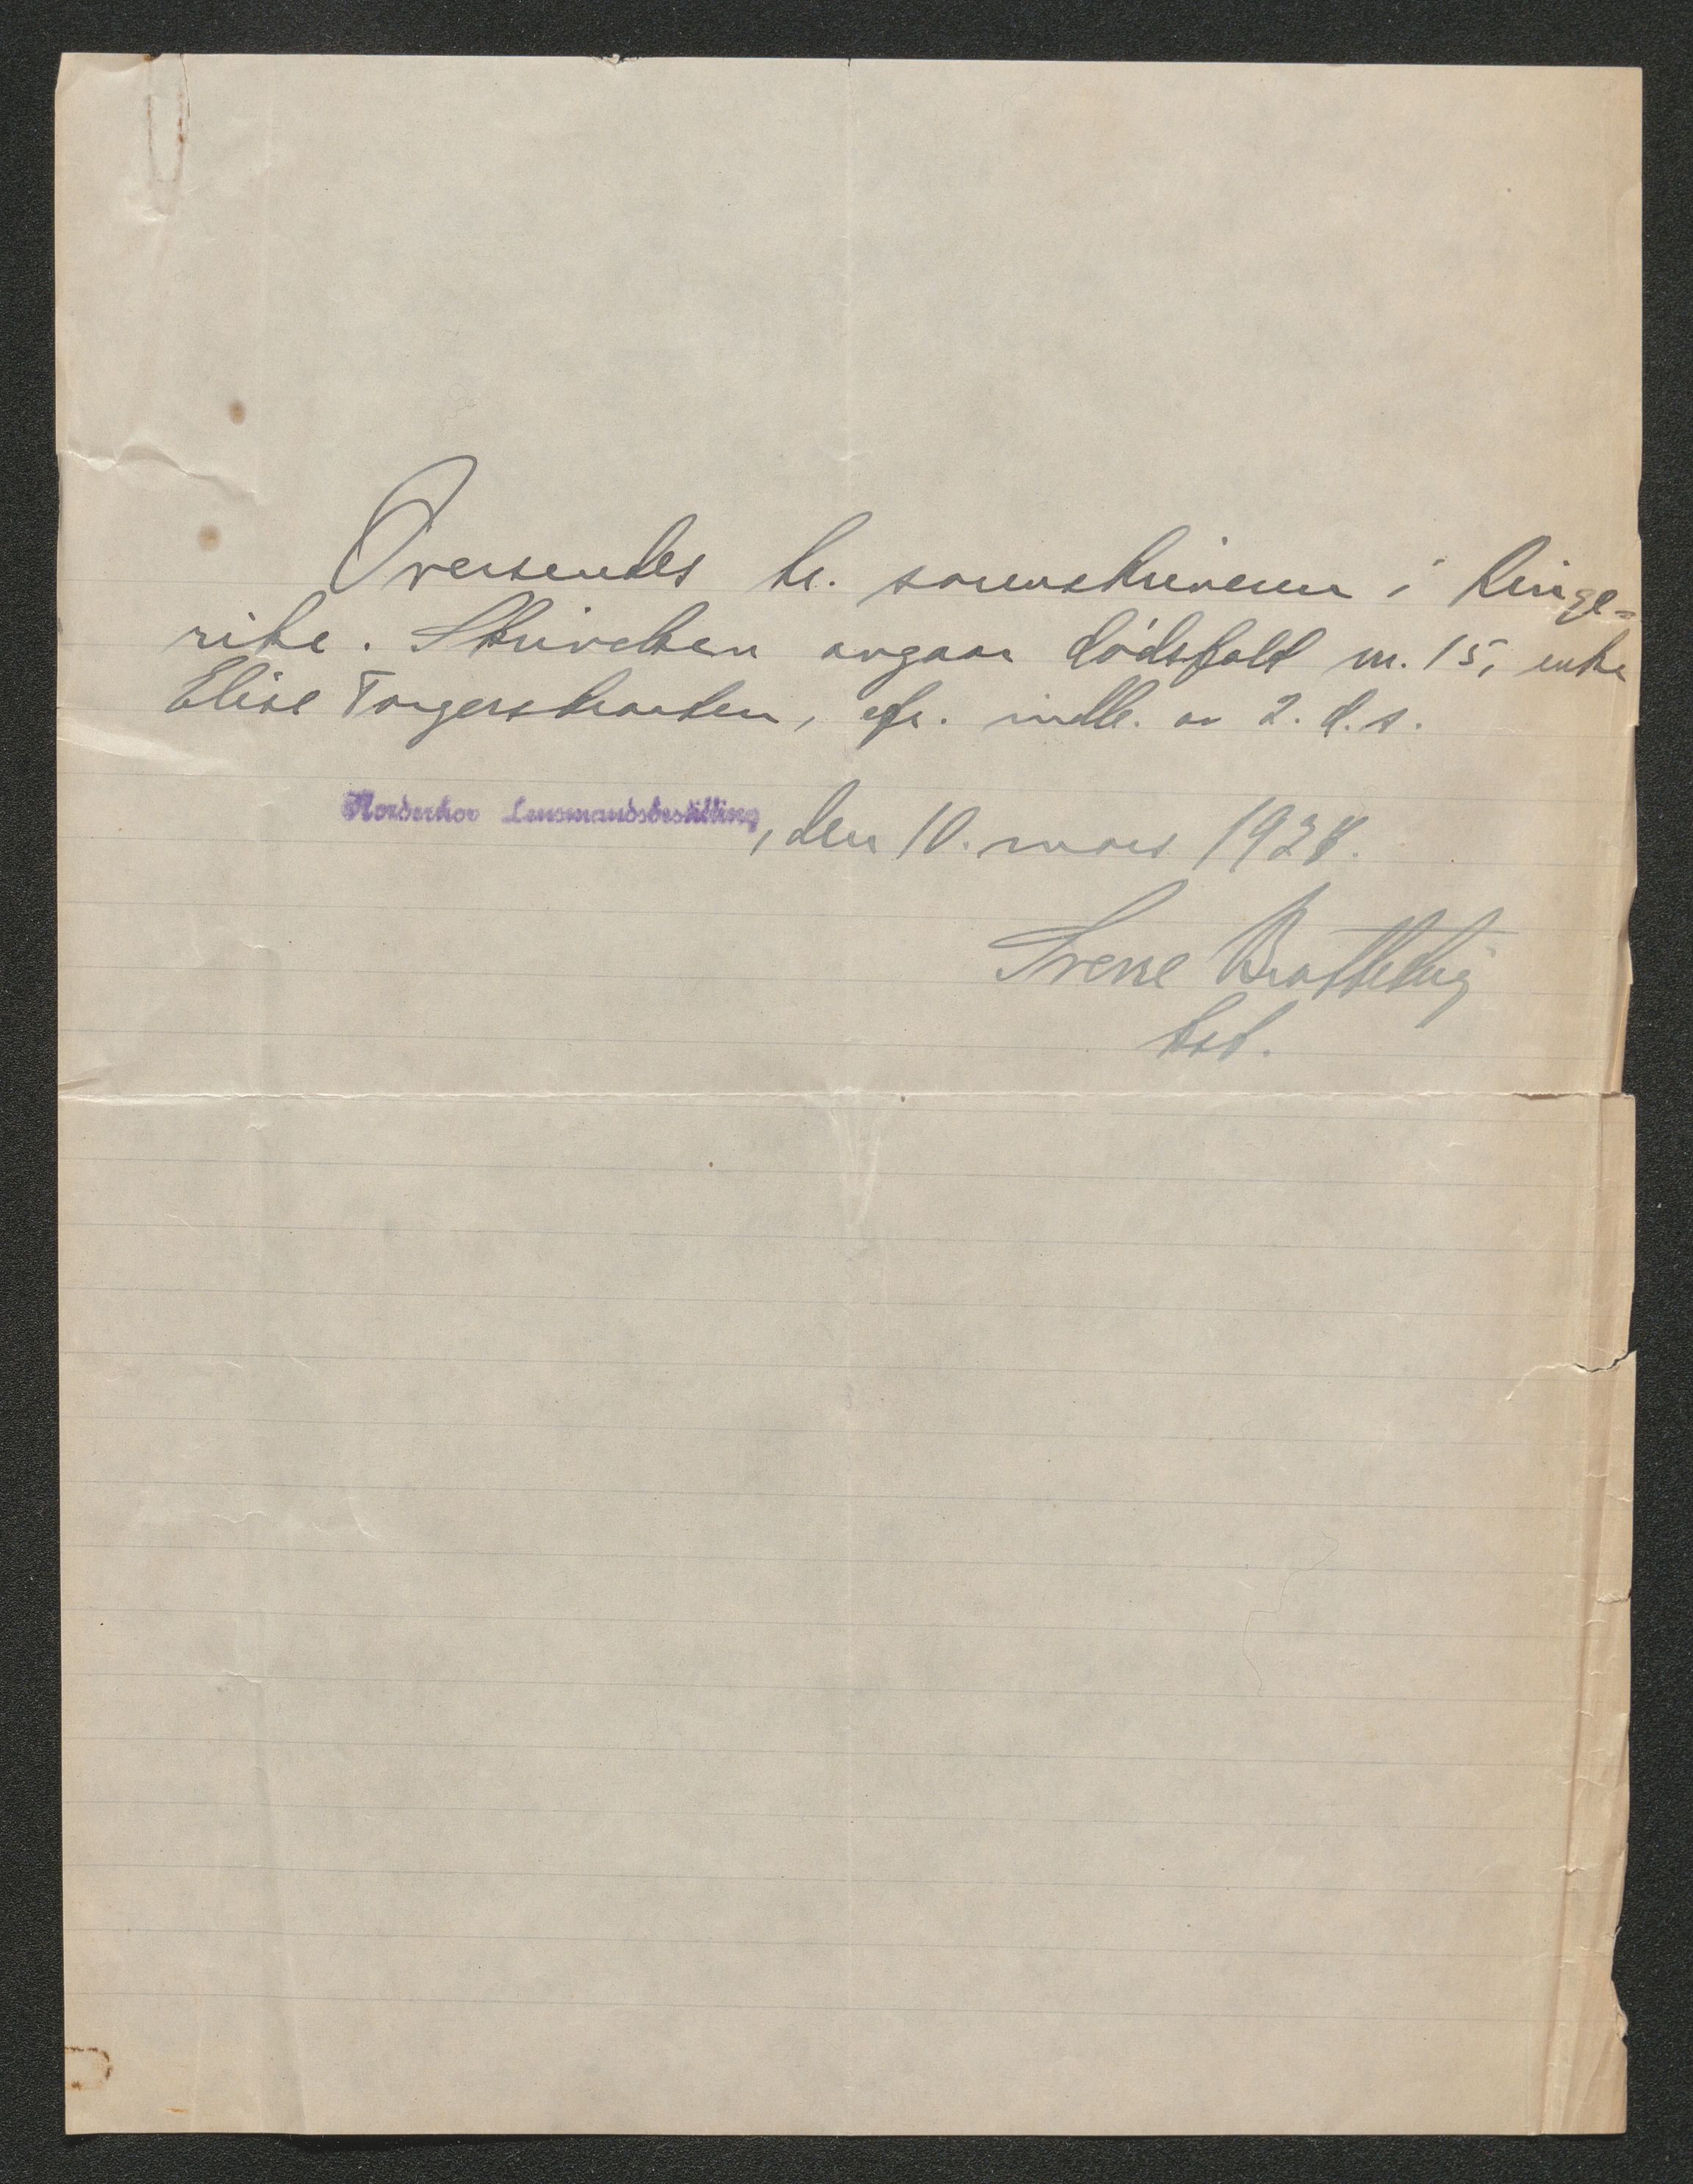 Oversendes hr. sorenskriveren i Ringe=
rike. Skrivelsen angaar dødsfald nr. 15, enke
Elise Torgersbraaten, cfr. indb. av 2. d.s.
Norderhov Lensmandsbestilling, den 10. mars 1928.
Sverre Brattekvig
bst.